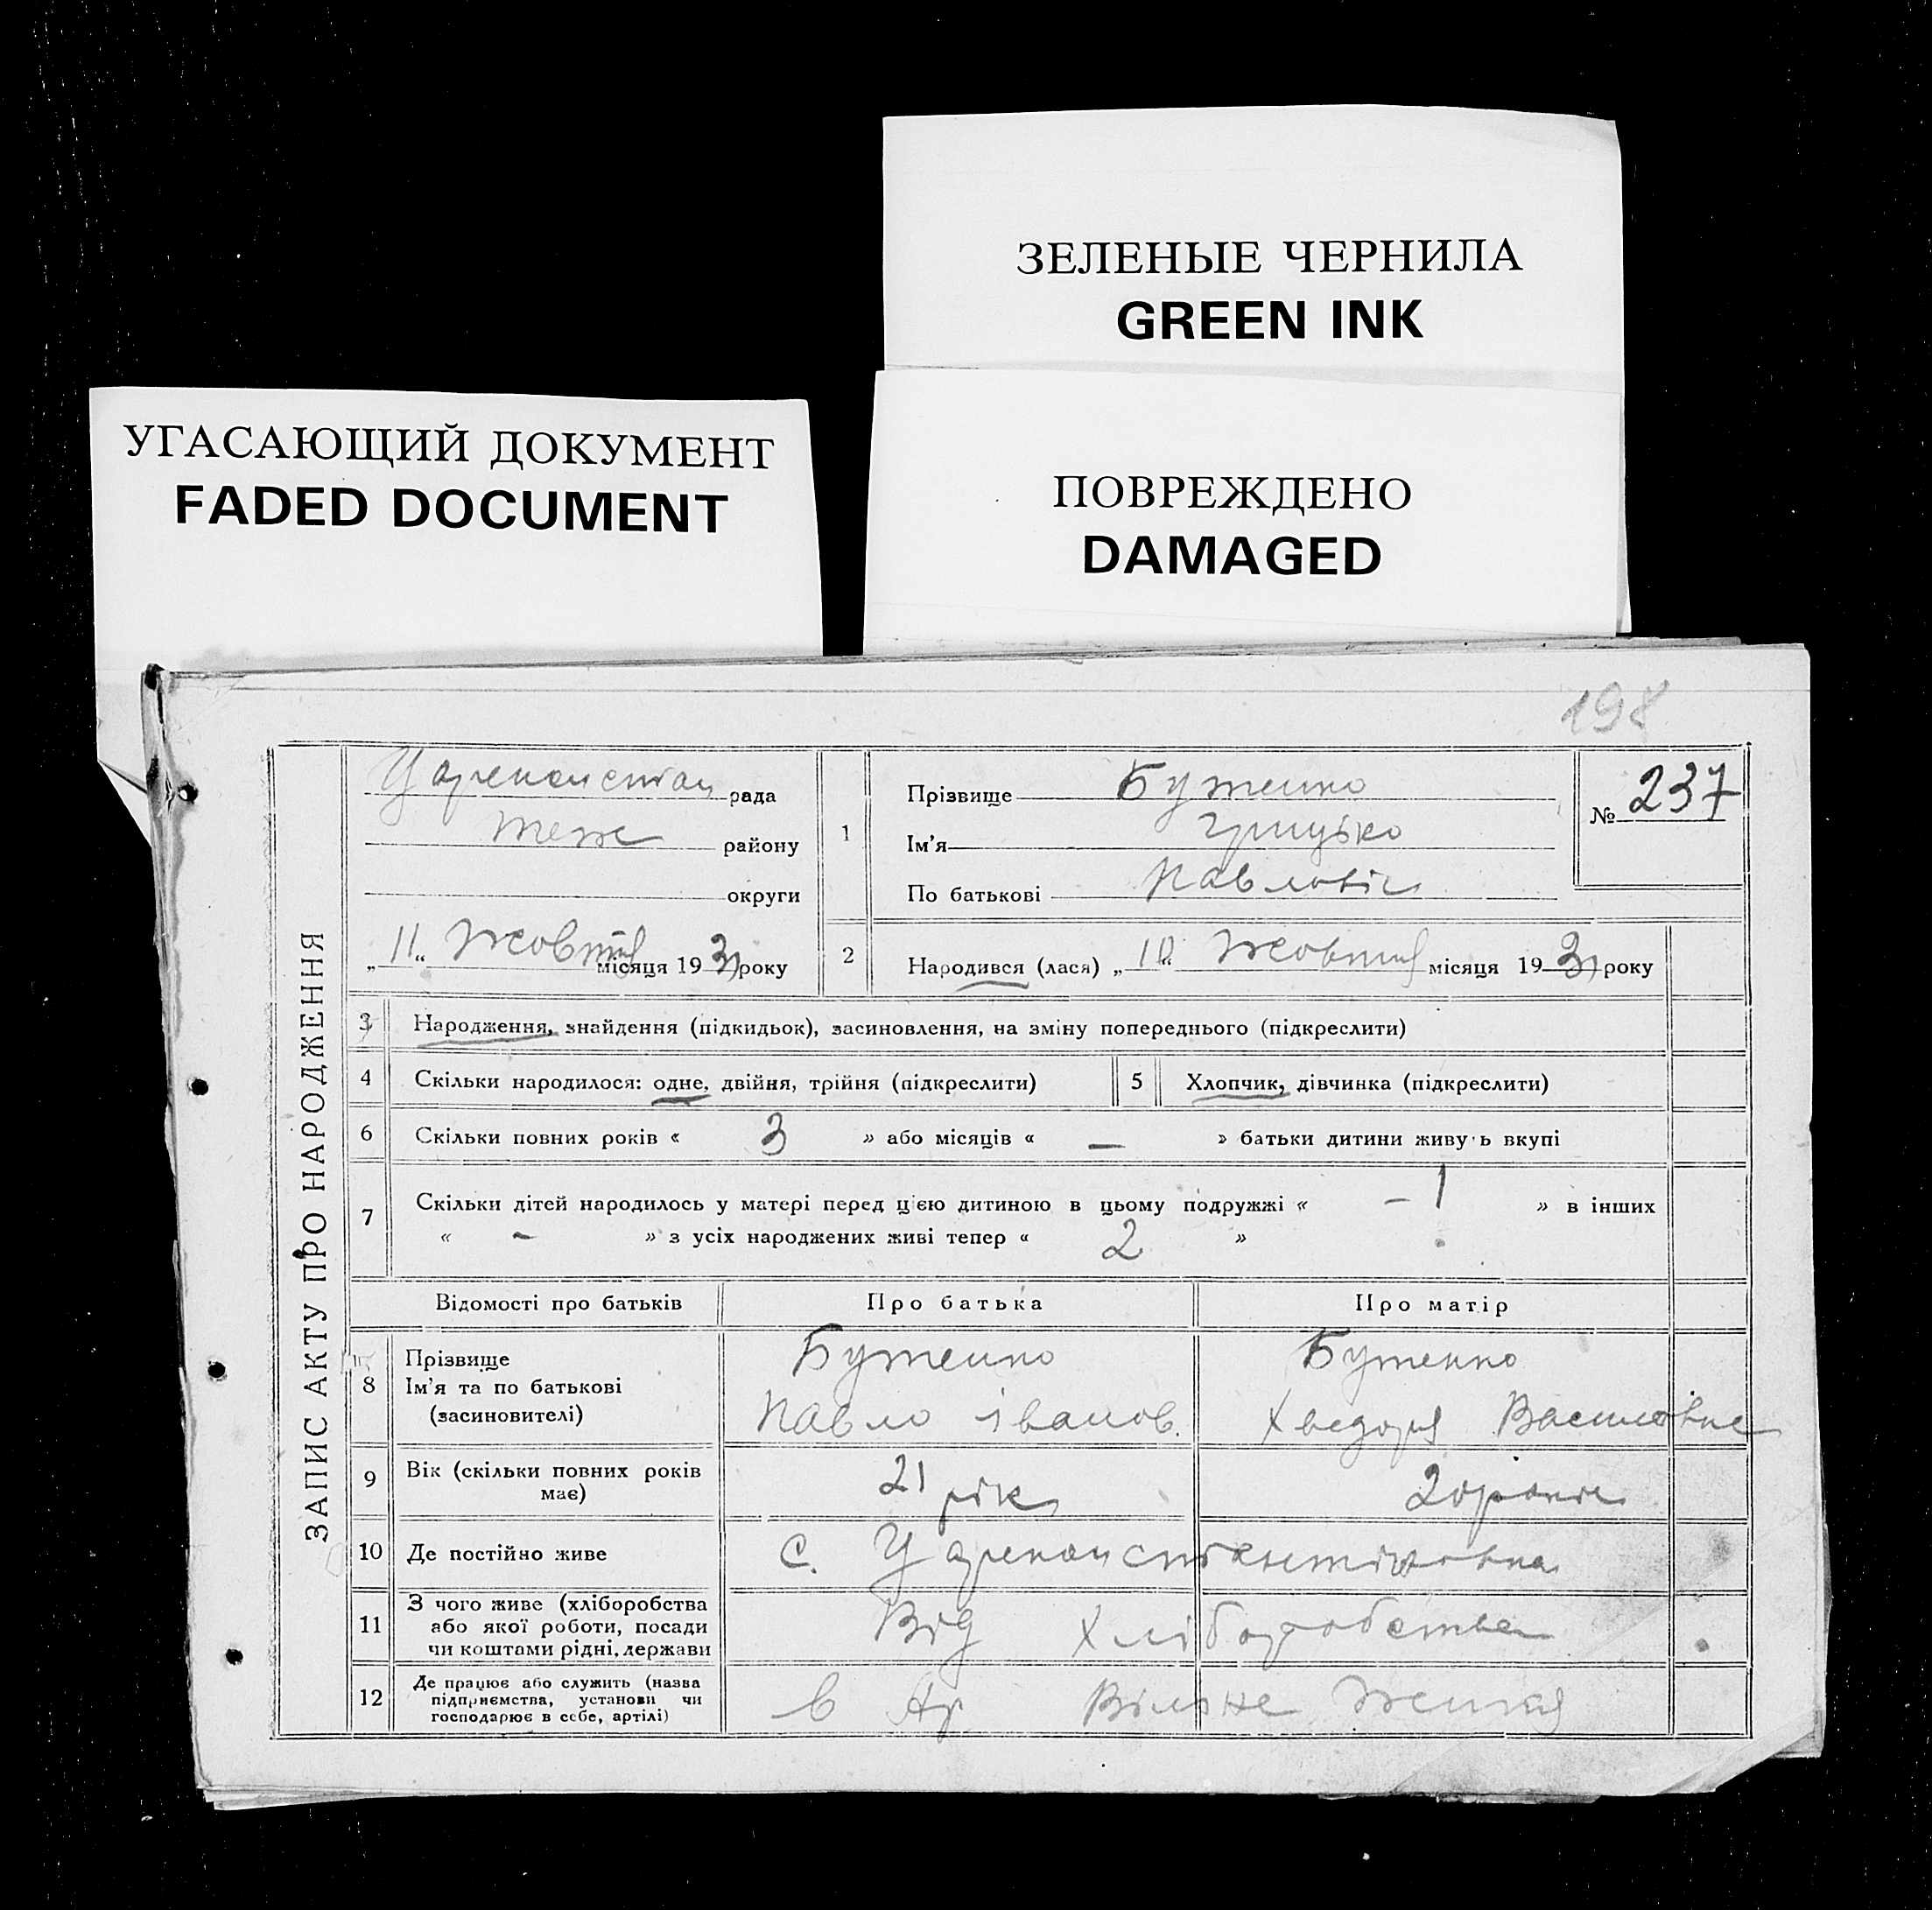 ЗЕЛЕНЫЕ ЧЕРНИЛА
GREEN INK
УГАСАЮЩИЙ ДОКУМЕНТ
FADED DOCUMENT
ПОВРЕЖДЕНО
DAMAGED
198
ЗАПИС АКТУ ПРО НАРОДЖЕННЯ
рада
теж району
округи
„11“ Жовтня місяця 1931 року
1
Прізвище Бутенко
Ім'я Грицько
По батькові Павловіч
№ 237
2 Народився (лася) „10“ Жовтня місяця 1931 року
3 Народження, знайдення (підкидьок), засиновлення, на зміну попереднього (підкреслити)
4 Скільки народилося: одне, двійня, трійня (підкреслити) 5 Хлопчик, дівчинка (підкреслити)
6 Скільки повних років « 3 » або місяців « — » батьки дитини живуь вкупі
7 Скільки дітей народилось у матері перед цією дитиною в цьому подружжі « – 1 » в інших
« - » з усіх народжених живі тепер « 2 »
Відомості про батьків Про батька Про матір
8 Прізвище Бутенко Бутенко
Ім'я та по батькові
(засиновителі) Павло Іванов. Хведора Василівна
9 Вік (скільки повних років має) 21 рік 20 років
10 Де постійно живе с. Цареконстантіновка
11 З чого живе (хліборобства
або якої роботи, посади
чи коштами рідні, держави Від Хліборобства
12 Де працює або служить (назва
підприємства, установи чи
господарює в себе, артілі) в Ар Вільне Життя